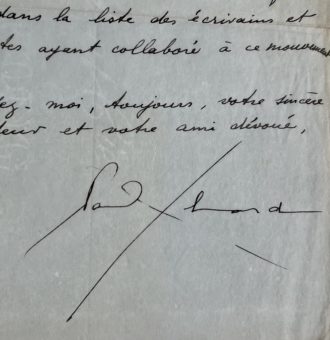 dans la liste des écrivains et
tes ayant collaboré à ce mouvement
ez-moi, toujours, votre sincère
eur et votre ami dévoué,